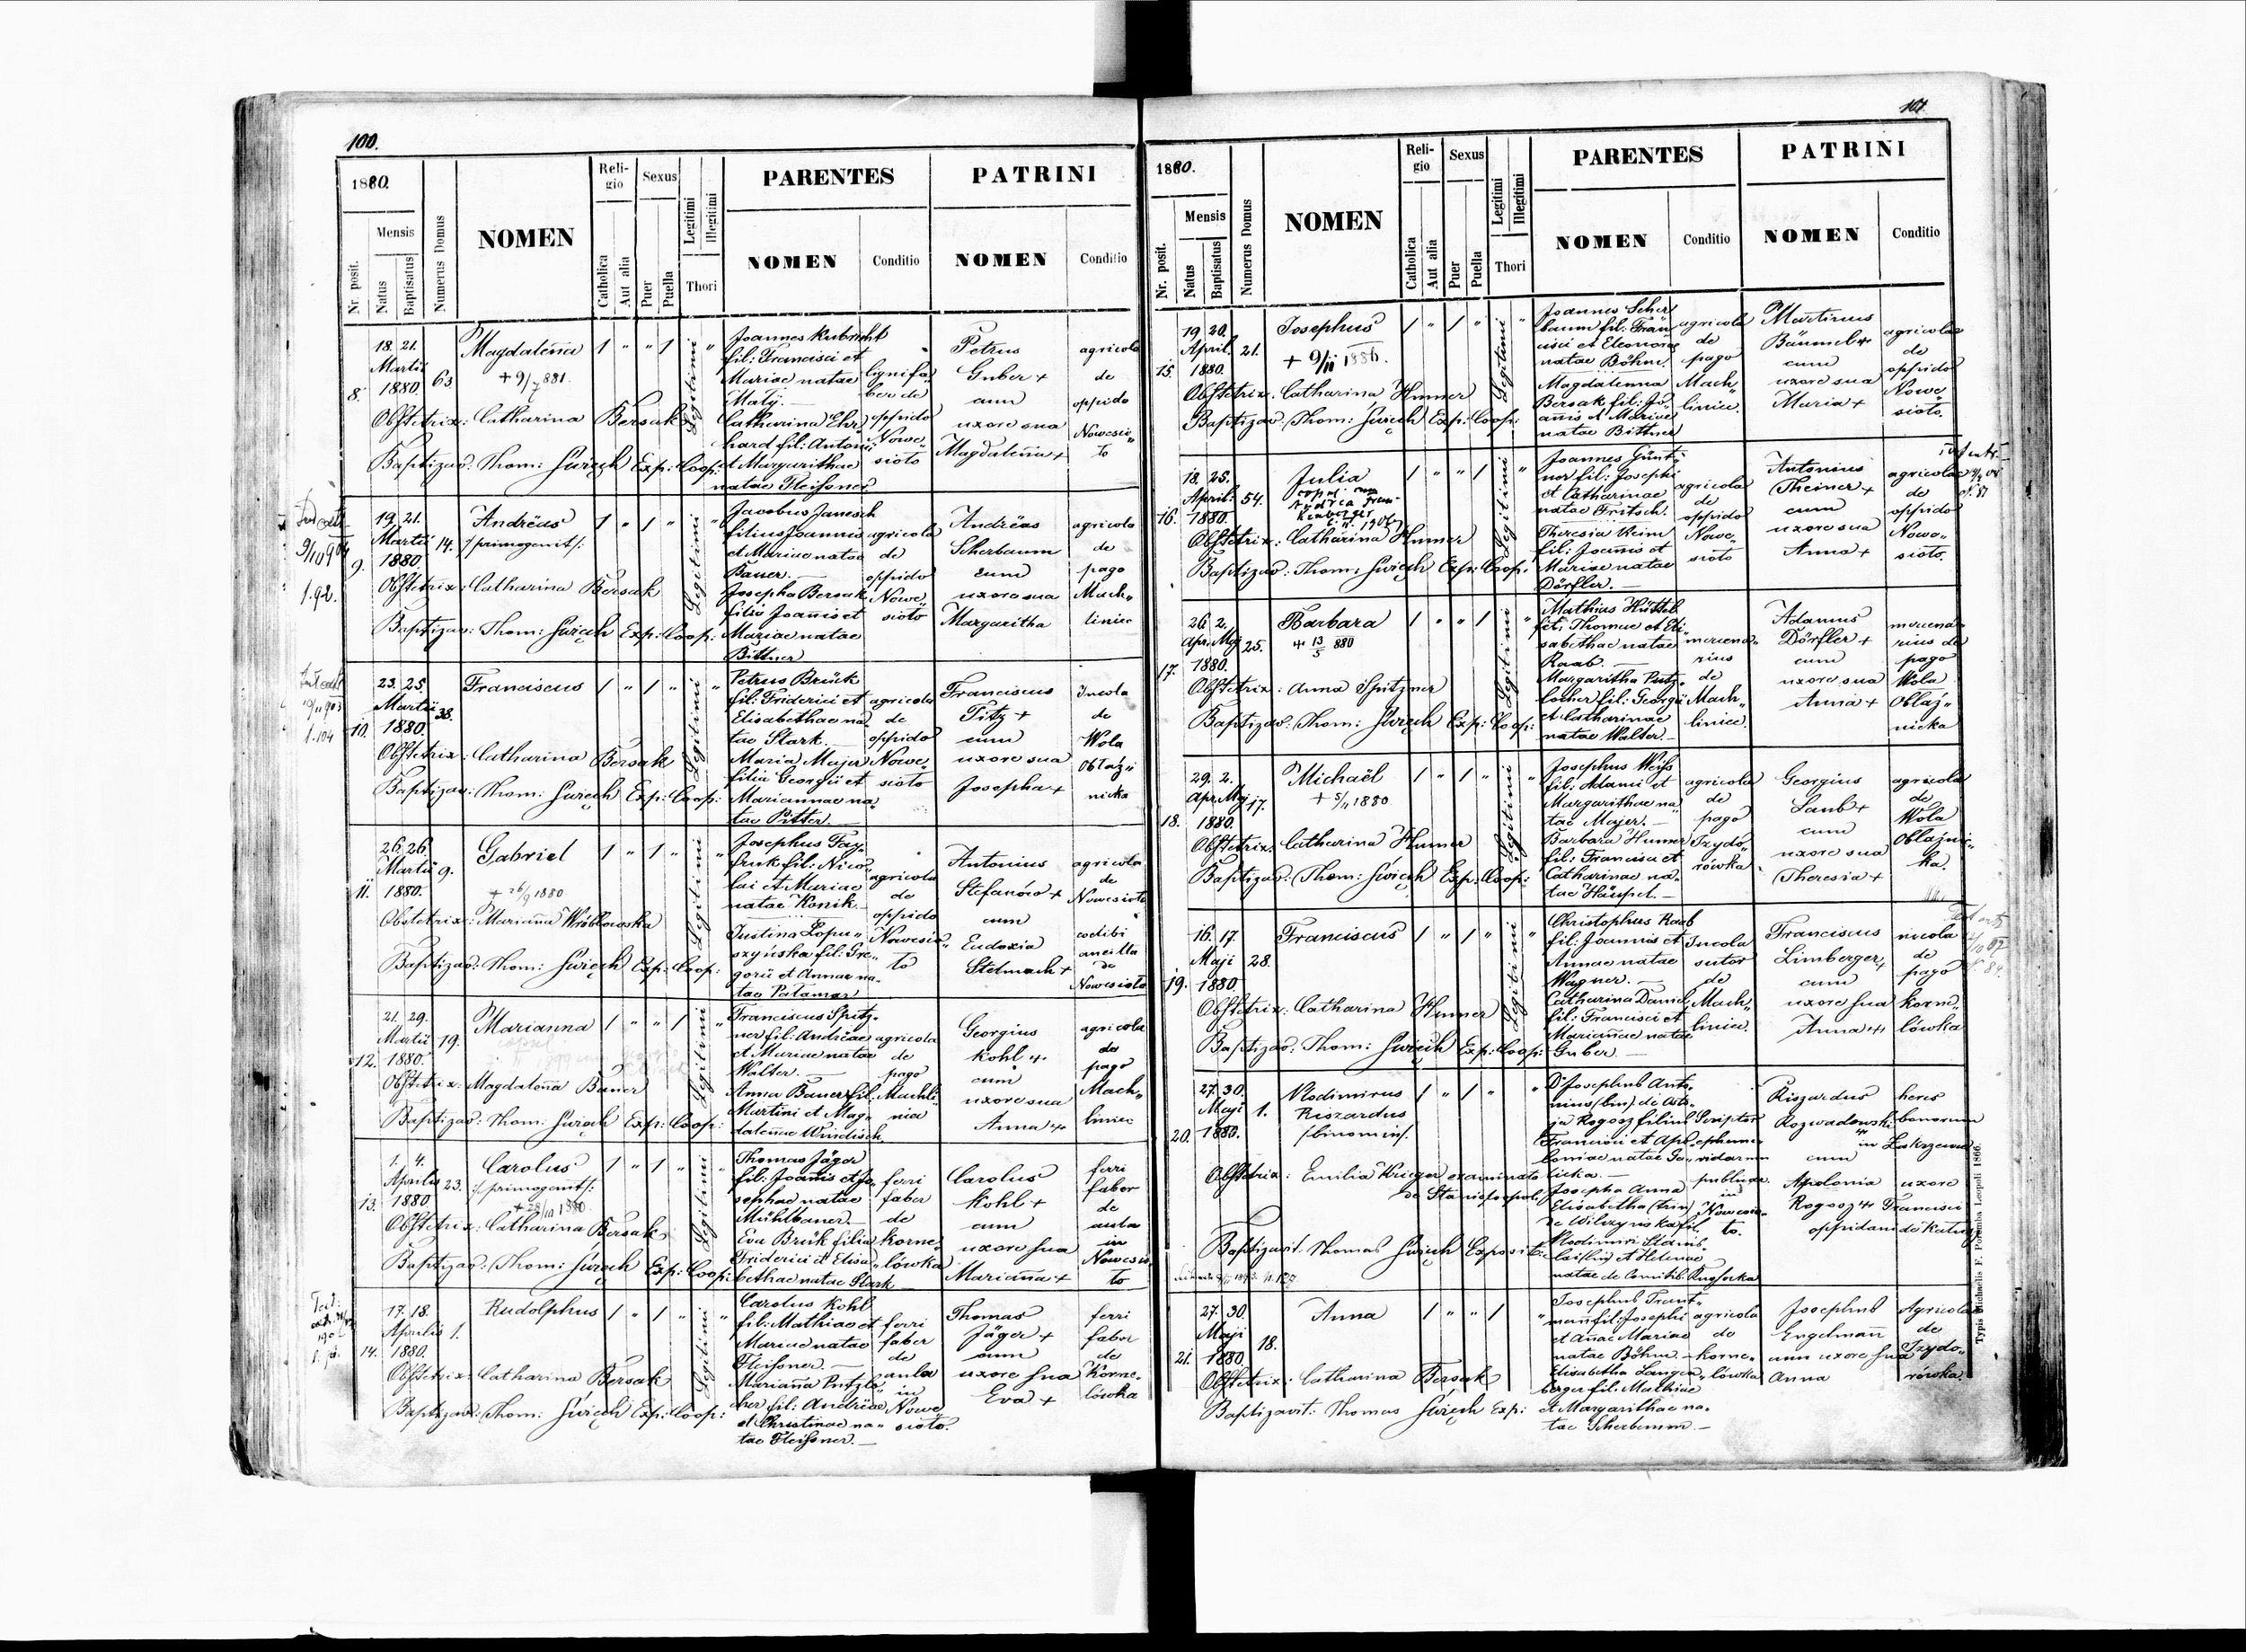 100.
1880.
Nr. posit.
Mensis
Natus
Baptisatus
Numerus Domus
NOMEN
Religio
Catholica
Aut alia
Sexus
Puer
Puella
Legitimi
Illegitimi
Thori
PARENTES
NOMEN
Conditio
PATRINI
NOMEN
Conditio
8.
18. 21.
Martii
1880.
63
Magdalena
+ 9/7 881.
1 " " 1 "
Legitimi
Obstetrix: Catharina Bersak
Baptizav: Thom: Święch Exp: Coop:
Joannes Kubricht
fil: Francisci et
Mariae natae
Maly.
Catharina Ehr
hard fil: Antonii
et Margarithae
natae Fleissner
oppido
Nowe
sioło
Petrus
Guber +
cum
uxore sua
Magdalena +
agricola
de
oppido
Nowesio
ło
9.
19. 21.
Martii
1880.
14.
Andreas
/: primogenit :/
Legitimi
Obstetrix: Catharina Bersak
Baptizav: Thom: Święch Exp: Coop:
Jacobus Janesch
filius Joannis
et Mariae natae
Bauer.
Josepha Bersak
filia Joannis et
Mariae natae
Bittner
agricola
de
oppido
Nowe
sioło
Andreas
Scherbaum
cum
uxore sua
Margaritha
agricola
de
pago
Mach
liniec
10.
23. 25.
Martii
1880.
38.
Franciscus
Legitimi
Obstetrix: Catharina Bersak
Baptizav: Thom: Święch Exp: Coop:
Petrus Brück
fil: Friderici et
Elisabethae na
tae Stark.
Maria Maja
filia Georgii et
Mariannae na
tae Pitter.
agricola
de
oppido
Nowe
sioło
Franciscus
Titz +
cum
uxore sua
Josepha +
Incola
de
Wola
Obłaź
nicka
11.
26. 26.
Martii
1880.
9.
Gabriel
+ 26/9 1880
Legitimi
Obstetrix: Marianna Wróblowska
Baptizav: Thom: Święch Exp: Coop:
fruk fil: Nico
lai et Mariae
natae Konik.
Justina Łopu
szyńska fil: Gre
gorii et Annae na
tae Patamar
agricola
de
oppido
Nowesio
ło
Antonius
Stefanów +
cum
Eudoxia
Stelmach +
agricola
de
Nowesioło
coelibi
ancilla
de
Nowesioło
12.
21. 29.
Martii
1880.
19.
Marianna
Legitimi
Obstetrix: Magdalena Bauer
Baptizav: Thom: Święch Exp: Coop:
Franciscus Spitz
ner fil: Andreae
et Mariae natae
Walter.
Anna Bauer fil:
Martini et Mag
dalenae Windisch
agricola
de
pago
Machli
niec
Georgius
Kohl +
cum
uxore sua
Anna +
agricola
de
pago
Mach
liniec
13.
1. 4.
Aprilis
1880
23.
Carolus
/: primogenit :/
Legitimi
Obstetrix: Catharina Bersak
Baptizav: Thom: Święch Exp: Coop:
Thomas Jäger
fil: Joannis et Jo
sephae natae
Mühlbauer.
Eva Brük filia
Friderici et Elisa
bethae natae Stark
ferri
faber
de
Korne
lówka
Carolus
Kohl +
cum
uxore sua
Marianna +
ferri
faber
de
aula
in
Nowesio
ło
14.
17. 18.
Aprilis
1880.
1.
Rudolphus
Legitimi
Obstetrix: Catharina Bersak
Baptizav: Thom: Święch Exp: Coop:
Carolus Kohl
fil: Mathiae et
Mariae natae
Fleissner.
Marianna Putzlo
her fil: Andreae
et Christinae na
tae Fleissner.
ferri
faber
de
aula
in
Nowe
sioło.
Thomas
Jäger +
cum
uxore sua
Eva +
ferri
faber
de
Korne
lówka
101
1880.
Nr. posit.
Mensis
Natus
Baptisatus
Numerus Domus
NOMEN
Religio
Catholica
Aut alia
Sexus
Puer
Puella
Legitimi
Illegitimi
Thori
PARENTES
NOMEN
Conditio
PATRINI
NOMEN
Conditio
15.
19. 20.
April.
1880.
21.
Josephus
+ 9/II 1886.
Legitimi
Obstetrix: Catharina Hunner
Baptizav: Thom: Święch Exp: Coop:
Joannes Scher
baum fil: Fran
cisci et Eleonorae
natae Böhm.
Magdalenna
Bersak fil: Jo
annis et Mariae
natae Bittner
agricola
de
pago
Mach
liniec.
Martinus
Bäumel +
cum
uxore sua
Maria +
agricola
de
oppido
Nowe
sioło.
16.
18. 25.
April.
1880.
54.
Julia
Legitimi
Obstetrix: Catharina Hunner
Baptizav: Thom: Święch Exp: Coop:
Joannes Günt
ner fil: Josephi
et Catharinae
natae Fritsch.
Theresia Keim
fil: Joannis et
Mariae natae
Dörfler.
agricola
de
oppido
Nowe
sioło
Antonius
Theiner +
cum
uxore sua
Anna +
agricola
de
oppido
Nowo
sioło.
17.
26. 2.
Apr. Maj
1880.
25.
Barbara
+ 13/5 880
Legitimi
Obstetrix: Anna Spitzner
Baptizav: Thom: Święch Exp: Coop:
Mathias Hüttel
fil: Thomae et Eli
sabethae natae
Raab.
Margaritha Putz
locher fil: Georgii
et Catharinae
natae Walter.
mercena
rius
de
Mach
liniec.
Adamus
Dörfler +
cum
uxore sua
Anna +
mercena
rius de
pago
Wola
Obłaź
nicka
18.
29. 2.
Apr. Maj
1880.
17.
Michaël
+ 5/11 1880
Legitimi
Obstetrix: Catharina Hunner
Baptizav: Thom: Święch Exp: Coop:
Josephus Weiss
fil: Adami et
Margarithae na
tae Majer.
Barbara Hunner
fil: Francisci et
Catharinae na
tae Häupel.
agricola
de
pago
Izydo
rówka
Georgius
Laub +
cum
uxore sua
Theresia +
agricola
de
Wola
Obłaźnic
ka.
19.
16. 17.
Maji
1880.
28.
Franciscus
Legitimi
Obstetrix: Catharina Hunner
Baptizav: Thom: Święch Exp: Coop:
Christophus Raab
fil: Joannis et
Annae natae
Wagner.
Catharina Daniel
fil: Francisci et
Mariannae natae
Guber
Incola
sutor
de
Mach
liniec.
Franciscus
Limberger +
cum
uxore sua
Anna +
incola
de
pago
Korne
lówka
20.
27. 30.
Maji
1880.
1.
Wlodimirus
Riszardus
/binomius/.
Obstetrix: Emilia Krieger examinata
de Stanislaopoli
Baptizavit: Thomas Święch Exposit:
D. Josephus Anto
nius (bin) de
Rogosz filius
Francisci et Apol
loniae natae
Josepha Anna
Elisabetha (trin)
Wlodimiri Stanis
et Helenae
Riszardus
Rozwadowski
cum
Apolonia
Rogosz
heres
bonorum
in
uxore
Francisci
oppidani de Kałusz
21.
27. 30.
Maji
1880.
18.
Anna
Obstetrix: Catharina Bersak
Baptizavit: Thomas Święch Exp:
Josephus Traut
mann fil: Josephi
et Annae Mariae
natae Böhm.
Elisabetha Langen
berger fil: Mathiae
et Margarithae na
tae Scherbemm
agricola
de
Korne
lówka
Josephus
Engelmann
cum uxore sua
Anna
Agricola
de
Izydo
rówka.
Typis Michaelis F. Poremba Leopoli 1866.